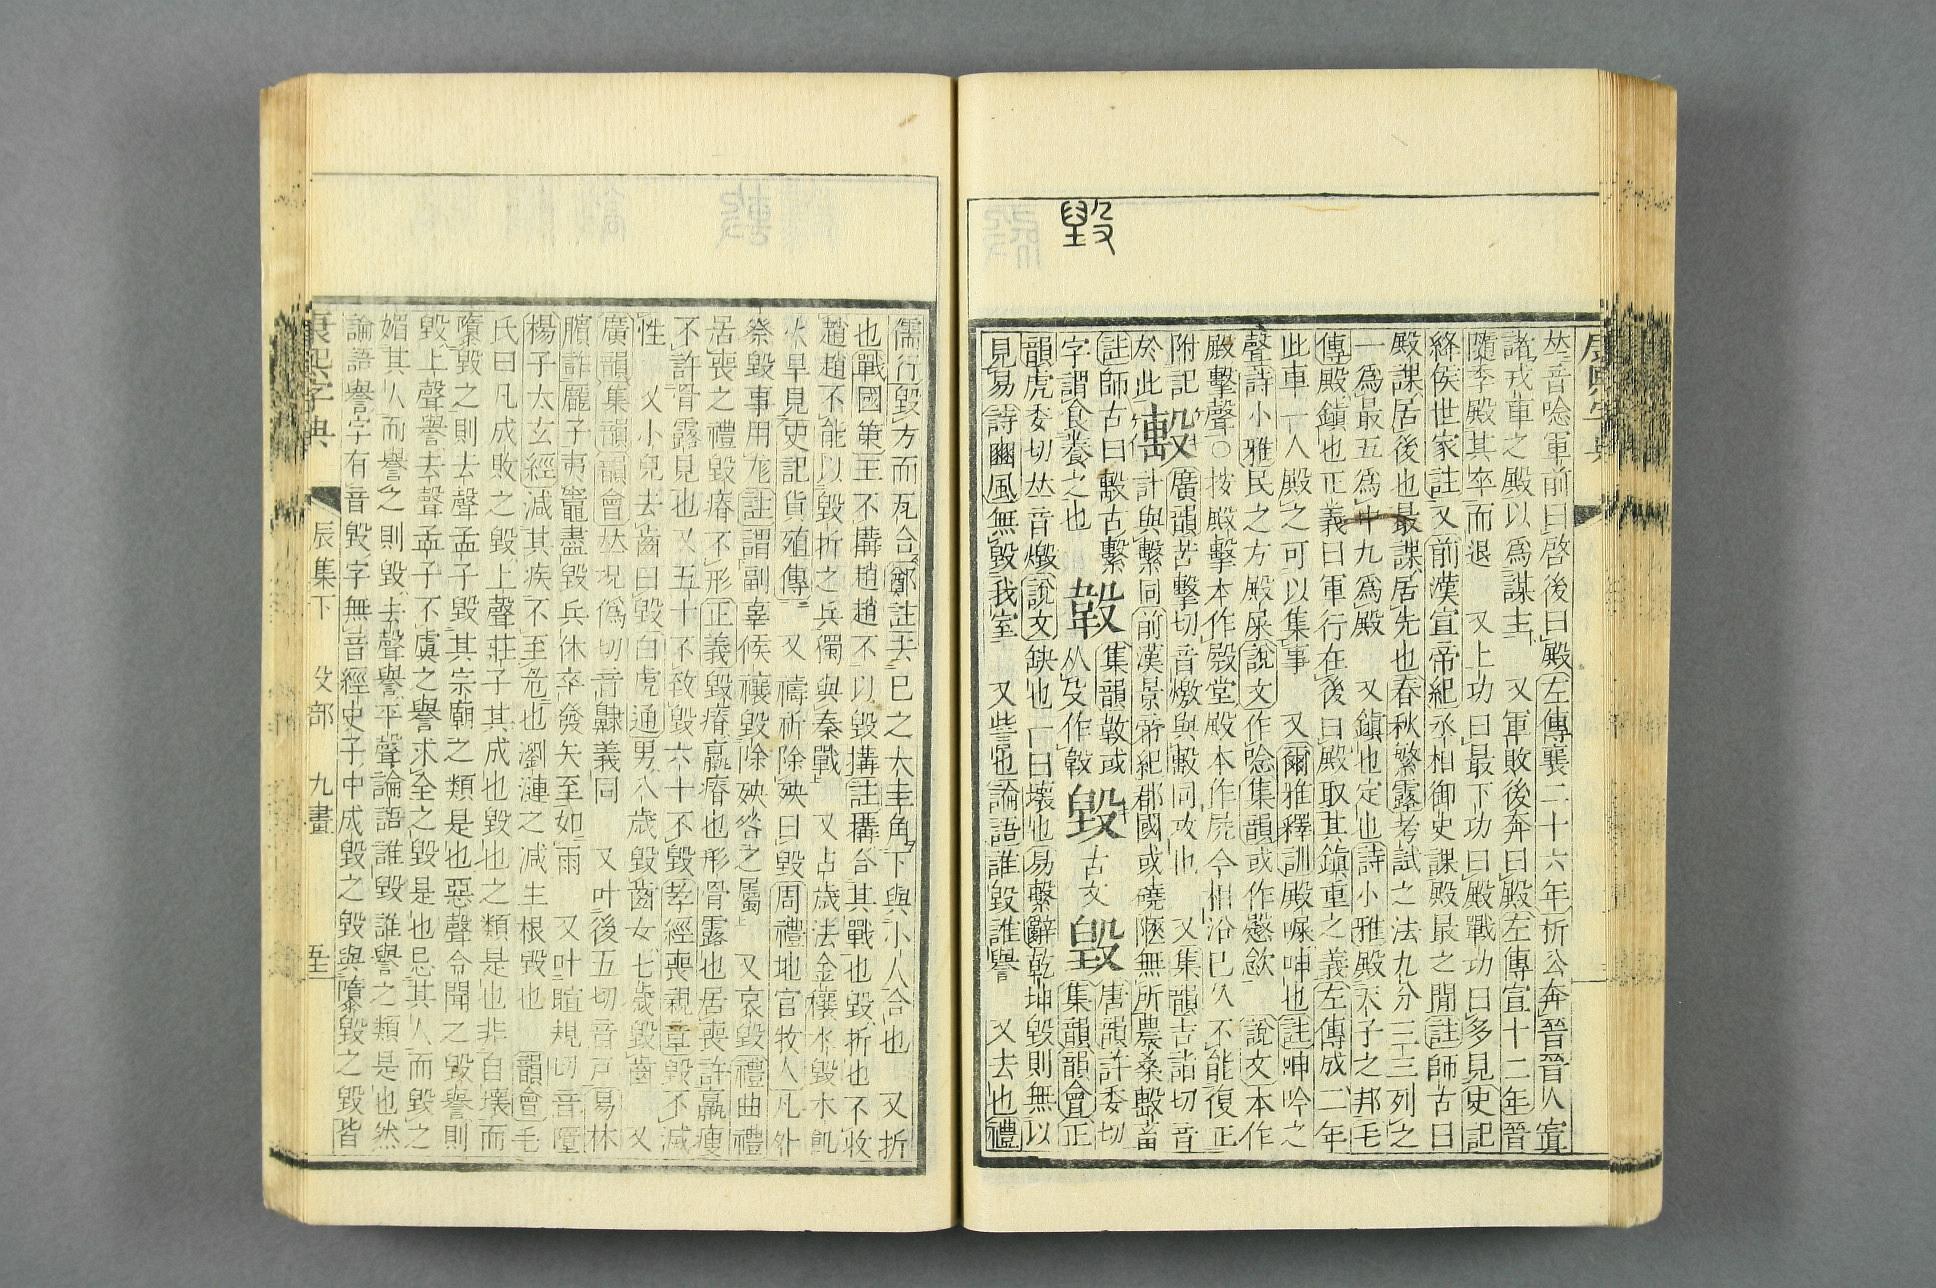 毀
丛音唸軍前曰啓後曰殿左傳襄二十六年析公奔晉晉人寘
諸戎車之殿以爲謀主 又軍敗後奔曰殿左傳宣十二年晉
隨季殿其卒而退 又上功曰最下功曰殿戰功曰多見史記
絳侯世家註又前漢宣帝紀丞相御史課殿最之聞註師古曰
殿課居後也最課居先也春秋繁露考試之法九分三三列之
一爲最五爲中九爲殿 又鎭也定也詩小雅殿天子之邦毛
傳殿鎭也正義曰軍行在後曰殿取其鎭重之義左傳成二年
此車一人殿之可以集事 又爾雅釋訓殿屎呻也註呻吟之
聲詩小雅民之方殿屎說文作唸集韻或作𢡱欨 說文本作
殿擊聲○按殿擊本作殿堂殿本作𡱂今相沿已久不能復正
附記於此
毄 廣韻苦擊切音燩與毃同攻也 又集韻吉詣切音
計與繫同前漢景帝紀郡國或磽陿無所農桑毄畜
註師古曰毄古繫
字謂食養之也
𣪊 集韻𣀉或
从殳作𣪊
毀 古文
毁 唐韻許委切
集韻韻會正
韻虎委切丛音燬說文缺也一曰壞也易繫辭乾坤毀則無以
見易詩豳風無毀我室 又訾也論語誰毀誰譽 又去也禮
儒行毀方而瓦合鄭註去己之大圭角下與小人合也 又折
也戰國策王不搆趙趙不以毀搆註搆合其戰也毀折也不收
趙趙不能以毀折之兵獨與秦戰 又占歲法金穰水毀木飢
火旱見史記貨殖傳 又禱祈除殃曰毀周禮地官牧人凡外
祭毀事用尨註謂副辜候禳毀除殃咎之屬 又哀毀禮曲禮
居喪之禮毀瘠不形正義毀瘠羸瘠也形骨露也居喪許羸瘦
不許骨露見也又五十不致毀六十不毀孝經喪親章毀不滅
性 又小兒去齒曰毀白虎通男八歲毀齒女七歲毀齒 又
廣韻集韻韻會丛況僞切音𪖙義同 又叶後五切音戸易林
臏詐龐子夷竈盡毀兵休卒發矢至如雨 又叶暄規切音隳
楊子太玄經減其疾不至危也瀏漣之減生根毀也 韻會毛
氏曰凡成敗之毀上聲莊子其成也毀也之類是也非自壞而
隳毀之則去聲孟子毀其宗廟之類是也惡聲令聞之毀譽則
毀上聲譽去聲孟子不虞之譽求全之毀是也忌其人而毀之
媚其人而譽之則毀去聲譽平聲論語誰毀誰譽之類是也然
論語譽字有音毀字無音經史子中成毀之毀與隳毀之毀皆
康熙字典 辰集下 殳部 九畫